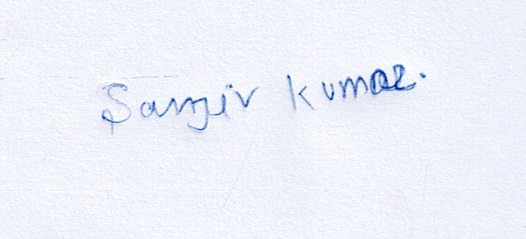 Sanjiv Kumar.